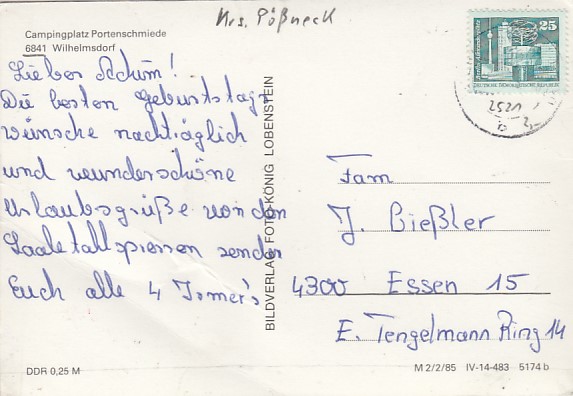 Krs. Pößneck
Campingplatz Portenschmiede
6841 Wilhelmsdorf
25
DEUTSCHE DEMOKRATISCHE REPUBLIK
Lieber Achim!
Die besten Geburtstags
wünsche nachträglich
und wunderschöne
Urlaubsgrüße von den
Saaletallsperren senden
Euch alle 4 Ismer's
BILDVERLAG FOTO-KÖNIG LOBENSTEIN
Fam
J. Bießler
4300 Essen 15
E. Tengelmann Ring 14
DDR 0,25 M
M 2/2/85 IV-14-483 5174 b